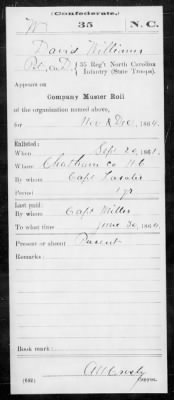 (Confederate.)
W 35 N.C.
David Williams
Pvt, Co. D, 35 Reg't North Carolina
Infantry (State Troops).
Appears on
Company Muster Roll
of the organization named above,
for Nov & Dec, 1864.
Enlisted:
When Sept 20, 186
Where Chatham Co N.C.
By whom Capt Lasater
Period 1 yr
Last paid:
By whom Capt Miller
To what time June 30, 1864
Present or absent Present
Remarks:
Book mark:
(642) Copyist.